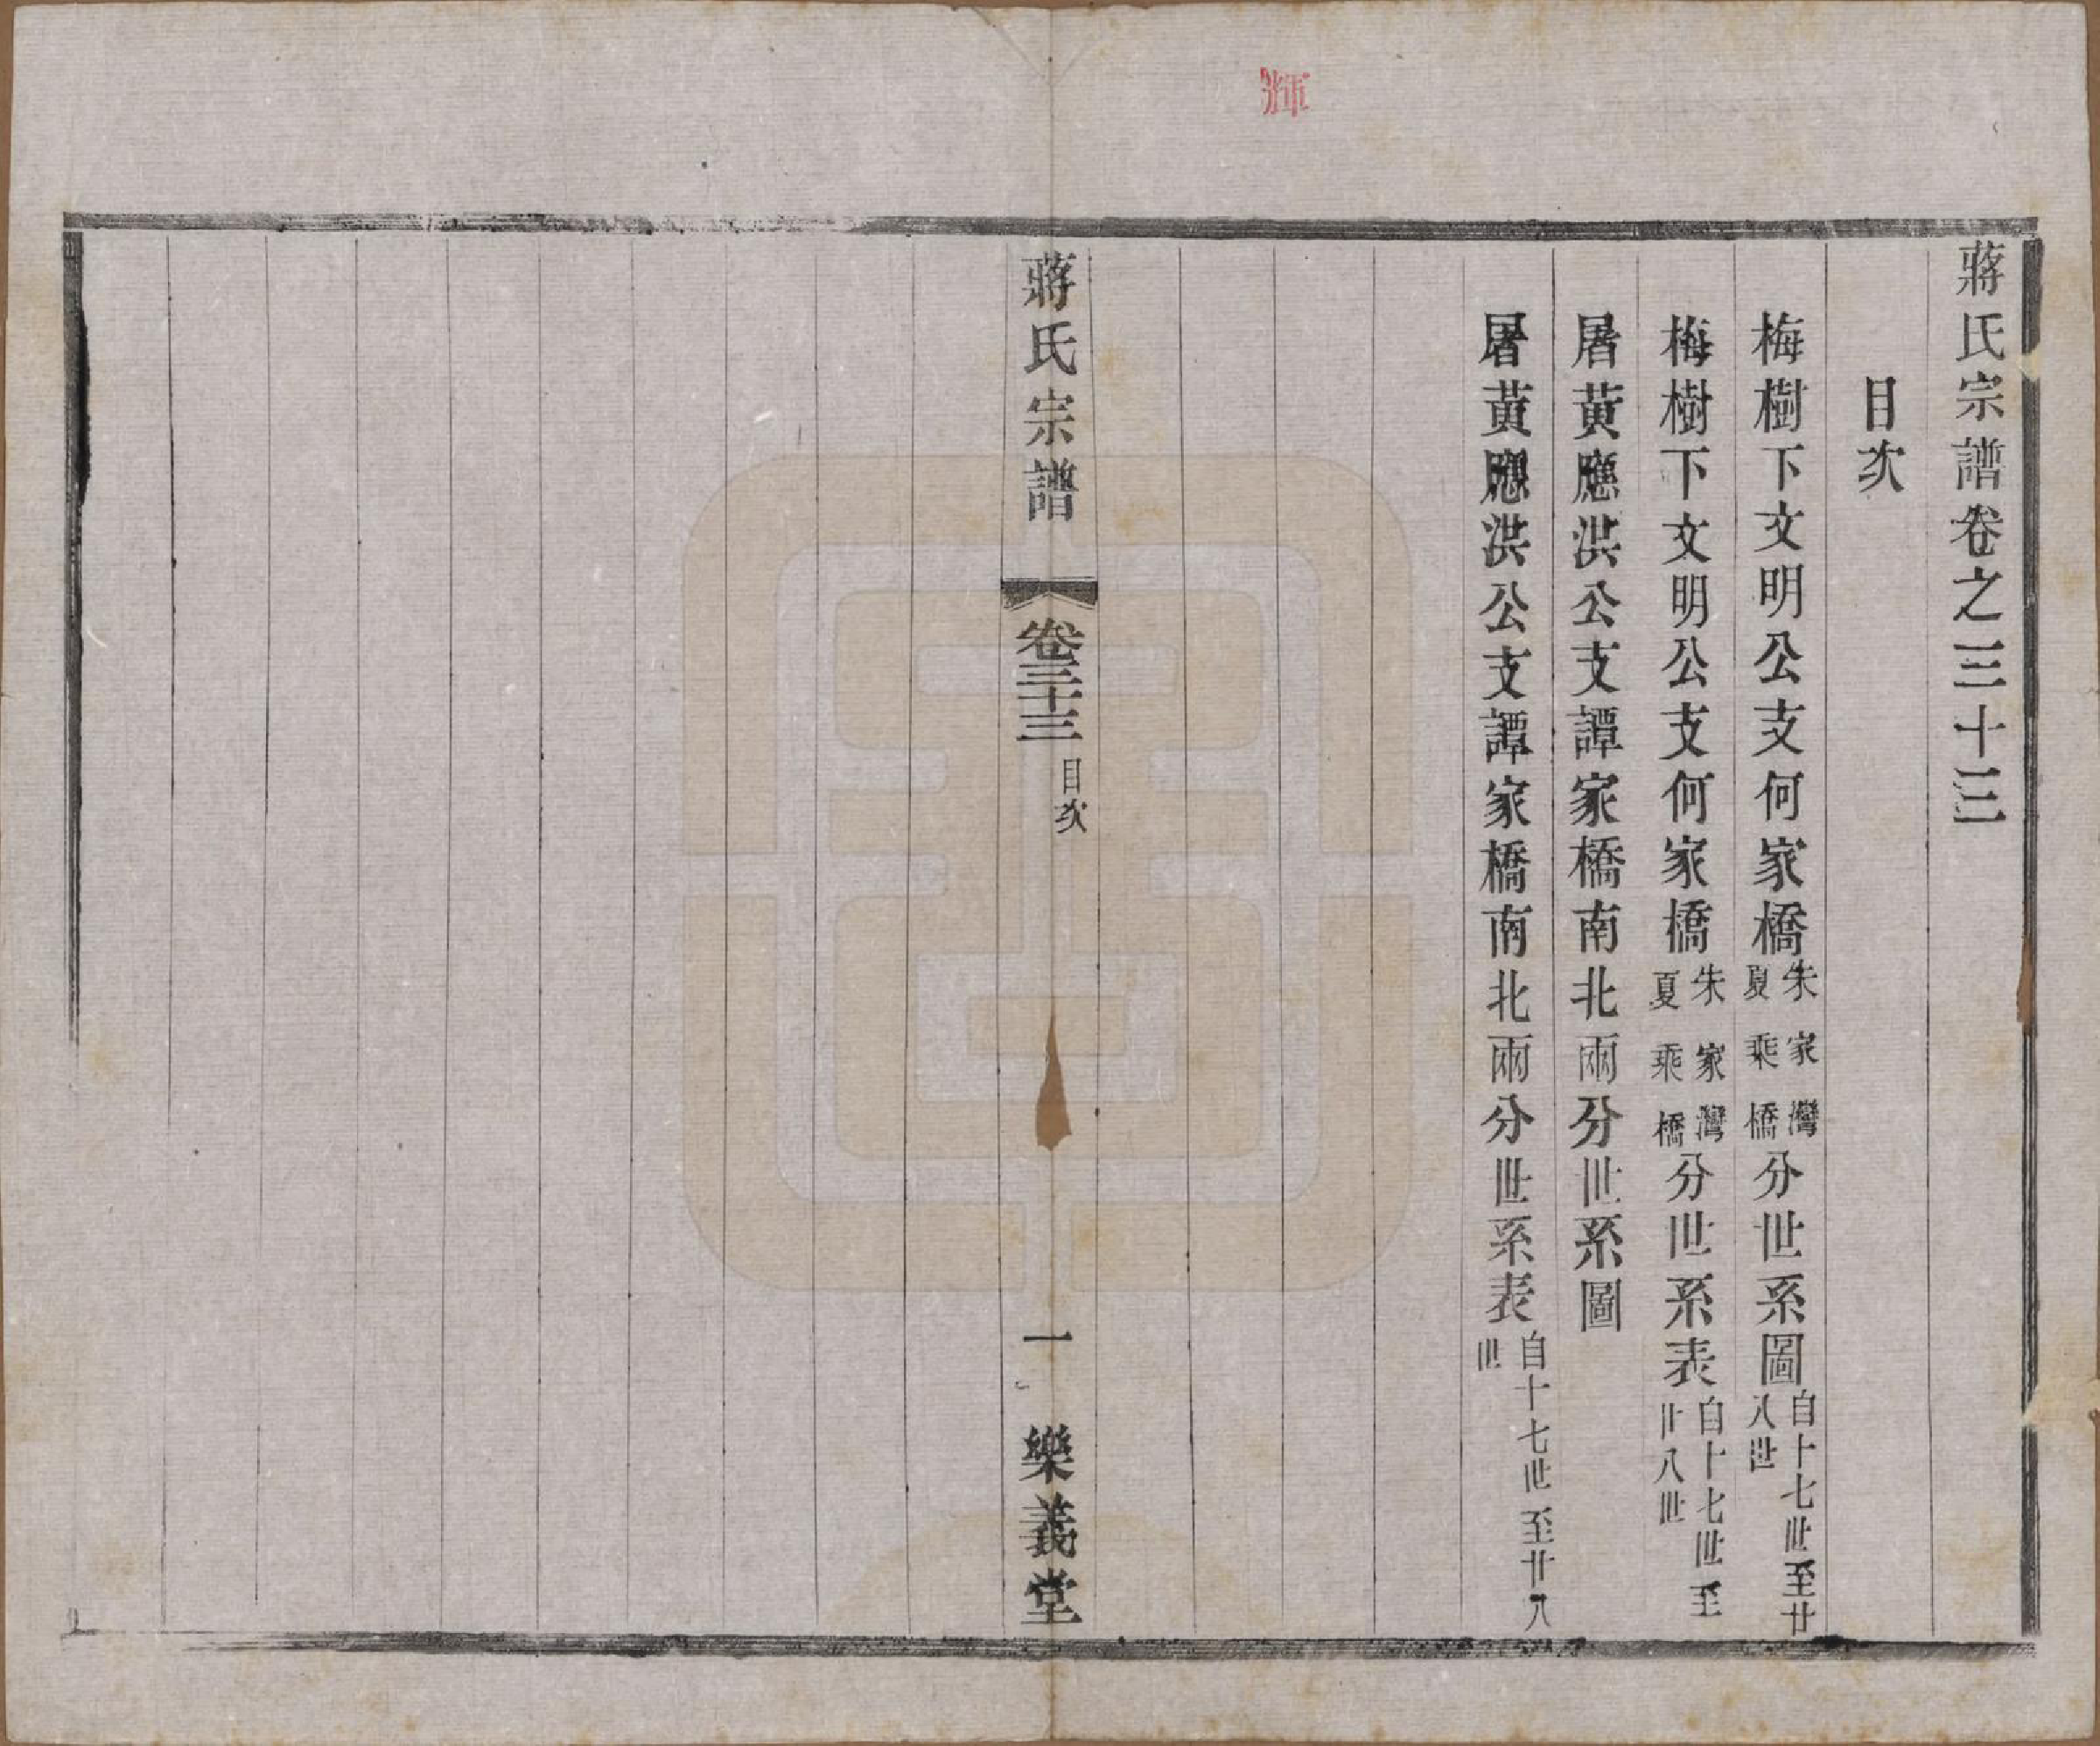 輝
蔣氏宗譜卷之三十三
目次
梅樹下文明公支何家橋朱家灣夏乘橋分世系圖自十七世至廿八世
梅樹下文明公支何家橋朱家灣夏乘橋分世系表自十七世至廿八世
屠黃應洪公支譚家橋南北兩分世系圖
屠黃應洪公支譚家橋南北兩分世系表自十七世至廿八世
蔣氏宗譜 卷三十三 目次 一 樂義堂